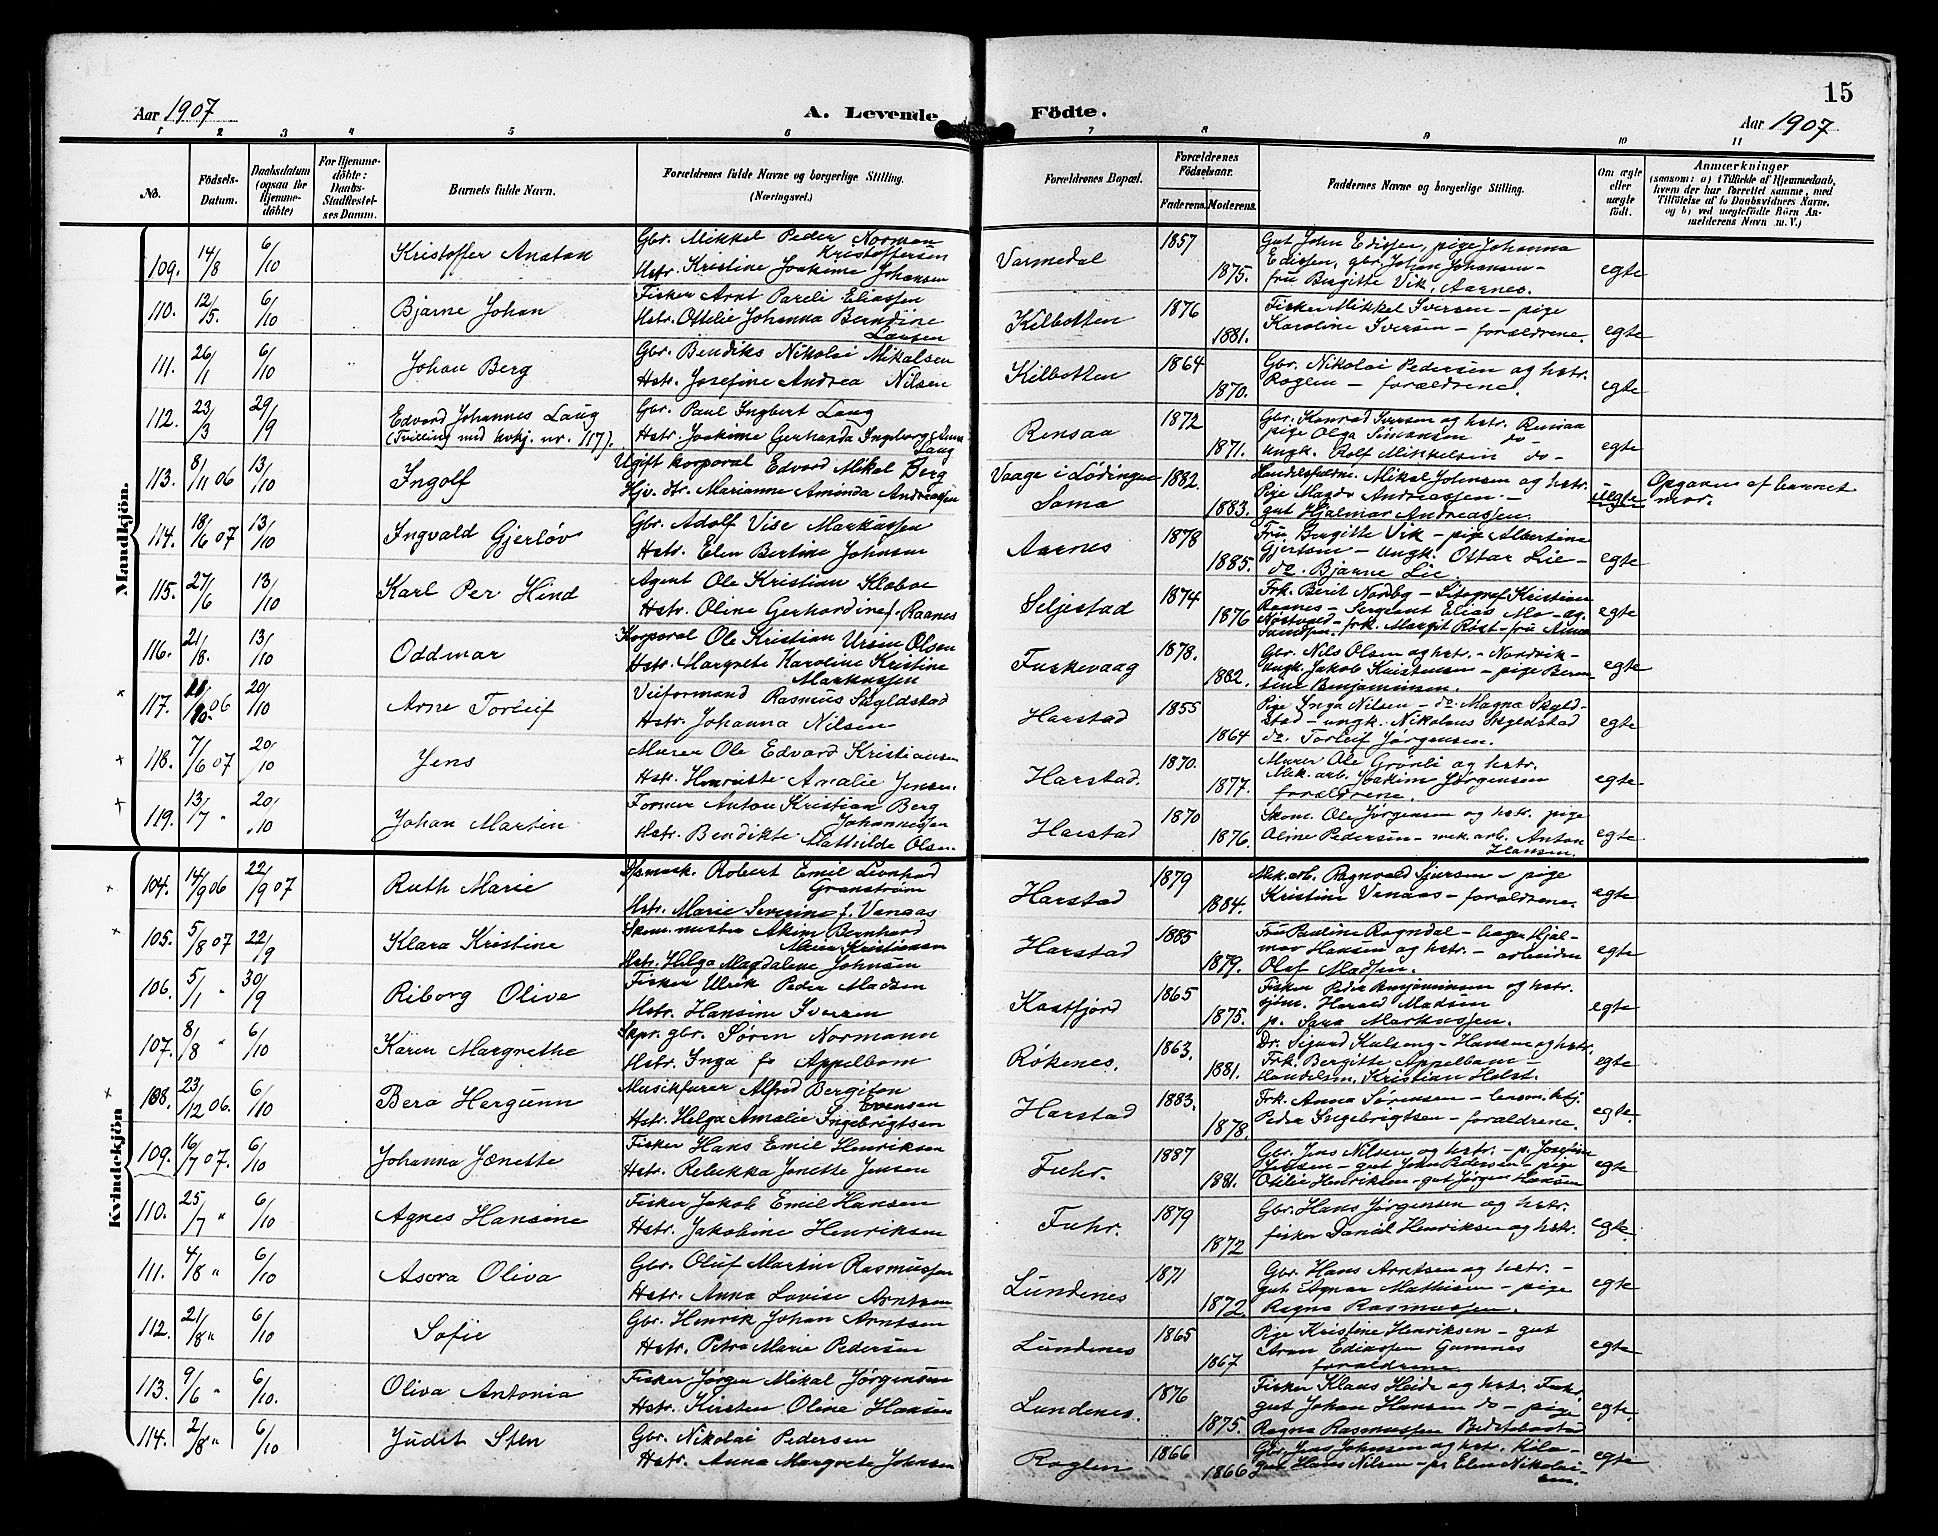 15
Aar 1907
A. Levende Födte.
Aar 1907
1 2 3 4 5 6 7 8 9 10 11
No.
Födsels-Datum.
Daabsdatum (ogsaa for Hjemmedöbte)
For Hjemmedöbte: Daabs-Stadfæstelses Datum.
Barnets fulde Navn.
Forældrenes fulde Navne og borgerlige Stilling. (Næringsvei.)
Forældrenes Bopæl.
Forældrenes Födselsaar.
Faderens. Moderens.
Faddernes Navne og borgerlige Stilling.
Om ægte eller uægte födt.
Anmærkninger
(saasom: a) i Tilfælde af Hjemmedaab, hvem der har forrettet samme, med Tilföielse af to Daabsvidners Navne, og b) ved uægtefödte Börn Anmelderens Navn m. V.)
Mandkjön.
109. 14/8 6/10 Kristoffer Anatan
Gbr. Mikkel Peder Norman Kristoffersen
Hstr. Kristine Joakime Johansen
Varmedal 1857 1875.
Gut John Edissen, pige Johanna
Edissen, gbr. Johan Johansen –
fru Birgitte Vik, Aarnes.
egte
110. 12/5. 6/10 Bjarne Johan
Fisker Arnt Pareli Eliassen
Hstr. Ottelie Johanna Berndine Larsen
Kilbotten 1876 1881.
Fisker Mikkel Iversen – pige
Karoline Iversen – forældrene.
egte
111. 26/1 6/10 Johan Berg
Gbr. Bendiks Nikolai Mikalsen
Hstr. Josefine Andrea Nilsen
Kilbotten 1864 1870.
Gbr. Nikolai Pedersen og hstr.
Roglen – forældrene.
egte
112. 23/3 29/9 Edvard Johannes Laug
(Tvilling med kvkj. nr. 117).
Gbr. Paul Ingbert Laug
Hstr Joakime Gerharda Ingeborg Laug
Rensaa 1872 1871.
Gbr. Konrad Iversen og hstr. Rensaa
pige Olga Simonsen do
ungk. Rolf Mikkelsen do –
egte
113. 8/11 06 13/10 Ingolf
Ugift korporal Edvard Mikal Berg
Hjv. dtr. Marianne Aminda Andreassen
Vaage i Lødingen
Sama 1882. 1883.
Handelsfuldm. Mikal Johnsen og hstr.
Pige Magda Andreassen. –
gut Hjalmar Andreassen.
uegte
Opgaven af barnet
mor.
114. 18/6 07 13/10 Ingvald Gjerløv
Gbr. Adolf Vise Markussen
Hstr. Elen Bertine Johnsen
Aarnes 1878 1885.
Fru Birgitte Vik – pige Albertine
Gjertsen – ungk. Ottar Lie –
do. Bjarne Lie.
egte
115. 27/6 13/10 Karl Per Hind
Agent Ole Kristian Kloboe
Hstr. Oline Gerhardine f. Raanes
Seljestad 1874 1876
Frk. Berit Nordby – Litograf Kristian
Raanes – Sergeant Elias Mo – og
– frk. Margit Røst – fru
egte
116. 21/8. 13/10 Oddmar
Korporal Ole Kristian Ursin Olsen
Hstr. Margrete Karoline Kristine Markussen
Fuskevaag 1878. 1882.
Gbr. Nils Olsen og hstr. – Nordvik –
ungk. Jakob Kristensen – pige Bern-
tine Benjaminsen.
egte
× 117. 06 20/10 Arne Torleif
Veiformand Rasmus Skyldstad
Hstr. Johanna Nilsen
Harstad 1855 1864
Pige Inga Nilsen – do. Magna Skyld-
stad – ungk. Nikolaus Skyldstad
do. Torleif Jørgensen.
egte
× 118. 7/6 07 20/10 Jens
Murer Ole Edvard Kristiansen
Hstr. Henriette Amalie Jensen.
Harstad. 1870. 1877.
Murer Ole Grønli og hstr.
Mek. arb. Joakim Jørgensen
forældrene.
egte
× 119. 13/7 " 20/10 Johan Martin
Former Anton Kristian Berg Johannessen
Hstr. Bendikte Mathilde Olsen.
Harstad 1870 1876.
Skom. Ole Jørgensen og hstr. pige
Oline Pedersen – mek. arb. Anton Hansen.
egte
Kvindekjön
× 104. 14/9 06 22/9 07 Ruth Marie
Robert Emil Leonhad Granstrøm
Hstr. Marie Severine f. Vanaas
Harstad 1879 1884.
Mek. arb. Ragnvald Sjursen – pige
Kristine Vanaas – forældrene.
egte
× 105. 5/8 07 22/9 Klara Kristine
Skom. mester Akim Bernhard Kristiansen
Hstr. Helga Magdalene Johnsen
Harstad 1885 1879.
Fru Pauline Rogndal – bager Hjal-
mar Hansen og hstr. – arbeider
Olaf Madsen.
egte
106. 5/1 " 30/9 Riborg Olive
Fisker Ulrik Peder Madsen
Hstr. Hansine Iversen
Kastfjord 1865 1875.
Fisker Peder Benjaminsen og hstr.
sjøm. Harald Madsen
p. Sara Markussen.
egte
107. 8/8 " 6/10 Karen Margrethe
Skpr. gbr. Søren Normann
Hstr. Inga f. Appelbom
Røkenes. 1863. 1881.
Dr. Sigurd Kulseng – Hansen og hstr.
Frk. Bergitte Appelbom –
Handelsm. Kristian Holst.
egte
× 108. 23/12 06. 6/10 Bera Hergunn
Musikfurer Alfred Bergiton Evensen
Hstr. Helga Amalie Ingebrigtsen
Harstad 1883. 1878.
Frk. Anna Sørensen – lensm. btj.
Peder Ingebrigtsen – forældrene.
egte.
109. 16/7 07. 6/10 Johanna Jænette
Fisker Hans Emil Henriksen
Hstr. Rebekka Jonette Jensen
Fuhr. 1887 1881.
Gbr. Jens Nilsen og hstr. – p. Josefine
Jensen – gut John Pedersen – pige
Otilie Henriksen – gut Jørgen Hansen
egte
110. 25/7 " 6/10 Agnes Hansine
Fisker Jakob Emil Hansen
Hstr. Jakobine Henriksen
Fuhr. 1879 1872
Gbr. Hans Jørgensen og hstr.
fisker Daniel Henriksen og hstr.
egte
111. 4/8 " 6/10 Asora Oliva
Gbr. Oluf Martin Rasmussen
Hstr. Anna Lovise Arntsen
Lundenes 1871 1872.
Gbr. Hans Arntsen og hstr. –
gut Agnar Mathisen – pige
Ragna Rasmussen.
egte
112. 21/8 " 6/10 Sofie
Gbr. Henrik Johan Arntsen
Hstr. Petra Marie Pedersen
Lundenes 1865 1867
Pige Kristine Henriksen – gut
Aron Ediassen Gamnes
forældrene
egte
113. 9/6 " 6/10. Oliva Antonia
Fisker Jørgen Mikal Jørgensen
Hstr. Kirsten Oline Hansen
Lundenes. 1876 1875.
Fisker Klaus Heide og hstr. Fuhr.
gut Johan Hansen do – pige
Ragna Rasmussen
egte.
114. 2/8 " 6/10 Judit Sten
Gbr. Nikolai Pedersen
Hstr. Anna Margrete Johnsen
Roglen 1866 1866
Gbr. Jens Johnsen og hstr.
gut Hans Nilsen – p. Elen Nikolai-
sen.
egte